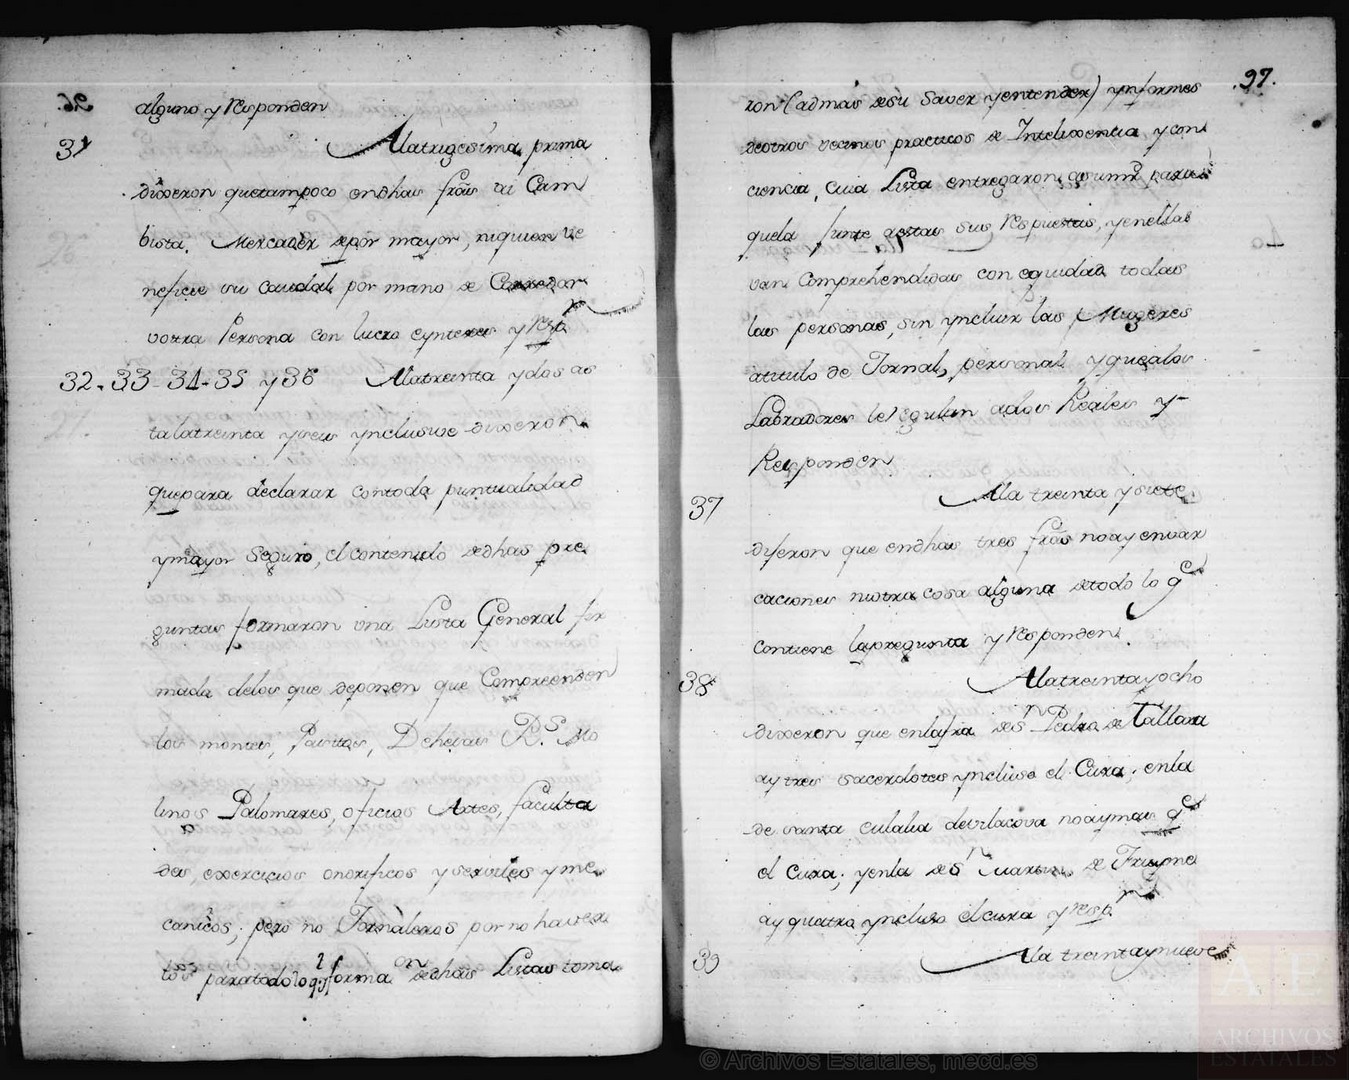 alguno y Responden
31
Alatrigesima, prima
dixeron quetampoco endhas frãs ai Cam
bista, Mercader depor mayor, niquien ve
neficie su caudal por mano de Corredor
votra Persona con lucro eynteres y Resp.
32-33-34-35 y 36
Alatreinta ydos as
talatreinta yseis ynclusive dixeron
quepara declarar contoda puntualidad
ymayor Seguro, el contenido dedhas pre
guntas formaron una Lista General fir
mada delos que deponen que Comprenden
los montes, Pastos, Dehesas Rs. Mo
linos Palomares, oficios Artes, faculta
des, exercicios onorificos yserviles yme
canicos; pero no Jornaleros porno haver
paratodolo forma on dedhas Listas toma
97.
ron (admas desu Saver yentender) ynformes
deotros vecinos practicos de Intelixencia y con
ciencia, cuia Lista entregaron asumrd para
quela Junte aestas sus Respuestas, yenellas
van Comprehendidas con equidad todas
las personas, sin yncluir las Mugeres
atitulo de Jornal, personal yquealos
Labradores leRegulan ados Reales y
Responden
37
Ala treinta ysiete
dijeron que endhas tres frãs noay envar
caciones niotra cosa alguna detodo lo qe
contiene lapregunta y Responden
38
Alatreintayocho
dixeron que enlafra deSn Pedro de Tállara
aytres sacerdotes ynclúso el Cura, enla
de santa eulalia devilacova noaymas qe
el Cura; yenla deSn Martin de Fruyme
ay quatro ynclúso elcura y resp.
39
Ala treintaynueve
© Archivos Estatales, mecd.es
AE
ARCHIVOS
ESTATALES